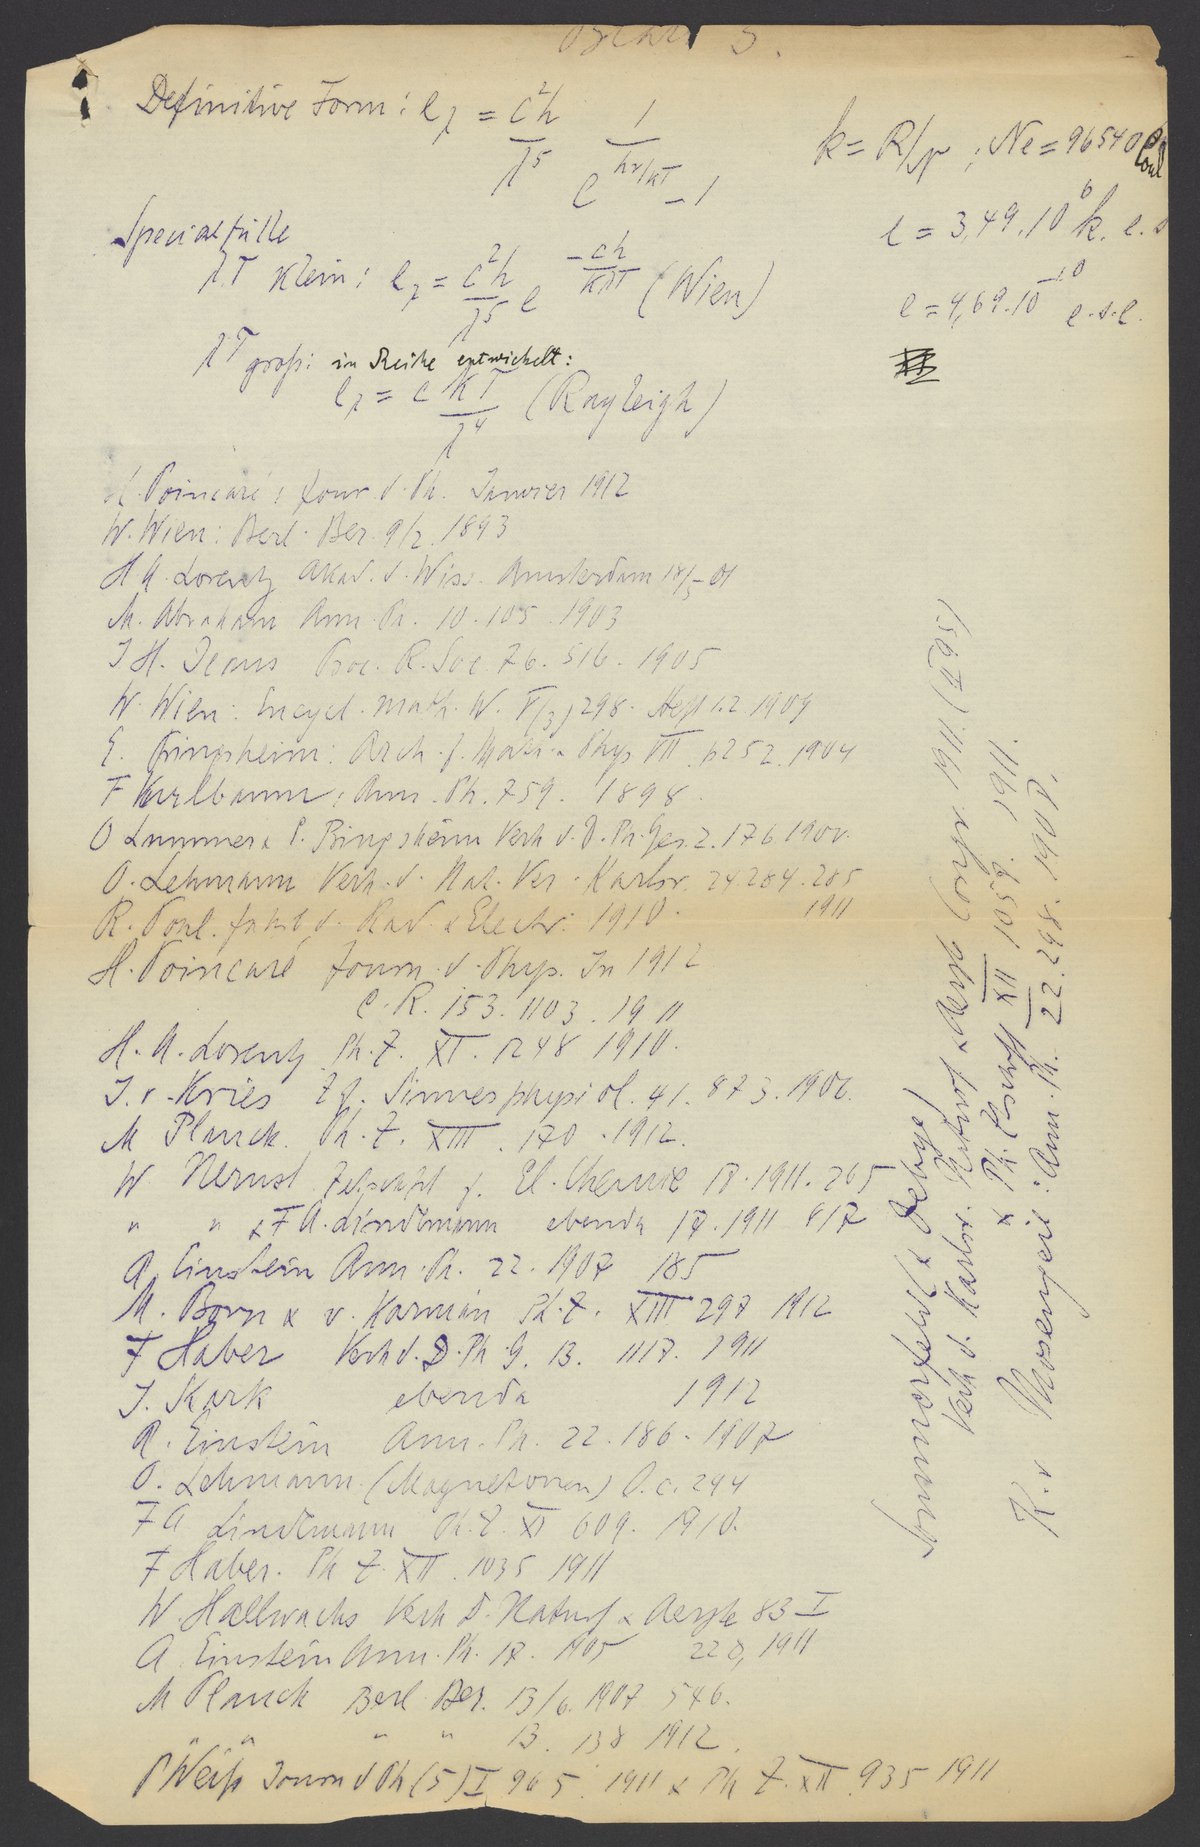 Definitive Form: e_λ = c²h/λ⁵ 1/(e^{hν/kT} - 1)
k = R/N ; Ne = 96540 Coul
e = 3,49.10⁶ k. e.s
e = 4,69.10⁻¹⁰ e.s.e.
Specialfälle
λT klein: e_λ = c²h/λ⁵ e^{-ch/kλT} (Wien)
λT groß: in Reihe entwickelt:
e_λ = c kT/λ⁴ (Rayleigh)
H. Poincaré: Jour. d. Ph. Janvier 1912
W. Wien: Berl. Ber. 9/2. 1893
H A. Lorentz Akad. d. Wiss. Amsterdam 18/5-01
M. Abraham Ann. Ph. 10. 105. 1903
J H. Jeans Proc. R. Soc. 76. 516. 1905
W. Wien: Encycl. math. W. V/3, 298. Heft 1.2. 1909
E. Pringsheim: Arch. f. Math. u Phys VII p252. 1904
F Kurlbaum: Ann. Ph. 759. 1898.
O Lummer & P. Pringsheim Verh d. D. Ph. Ges. 2. 176 1900.
O. Lehmann Verh. d. Nat. Ver. Karlsr. 24 284. 285
1911
R. Pohl. Jahrb d. Rad. & Electr. 1910.
H. Poincaré Journ. d. Phys. Jn 1912
C. R. 153. 1103. 1911
H. A. Lorentz Ph. Z. XI. 1248 1910.
J. v. Kries Z f. Sinnesphysiol. 41. 373. 1906.
M Planck. Ph. Z. XIII. 170. 1912.
W Nernst Zeitschft f. El. Chemie 17. 1911. 265
" " & F A. Lindemann ebenda 17. 1911 817
A. Einstein Ann. Ph. 22. 1907 185
M. Born & v. Karman Ph. Z. XIII 297 1912
F Haber Verh d. D. Ph. G. 13. 1117. 1911
J. Kark ebenda 1912
A. Einstein Ann. Ph. 22. 186. 1907
O. Lehmann (Magnetonen) l. c. 294
F A Lindemann Ph. Z. XI 609. 1910.
F Haber. Ph Z. XII. 1035 1911
W. Hallwachs Verh D. Naturf & Aerzte 83 I
A Einstein Ann. Ph. 17. 1905 220, 1911
M Planck Berl. Ber. 13/6. 1907 546.
" " " " 13. 138 1912.
P Weiß Journ d Ph (5) I 965. 1911 & Ph Z. XII. 935 1911
Sommerfeld & Debye
Verh d. Karlsr. Naturf & Aerzte Congr. 1911.
& Ph. Ztschft XII 1057. 1911.
K. v Mosengeil: Ann. Ph. 22. 298. 1907.